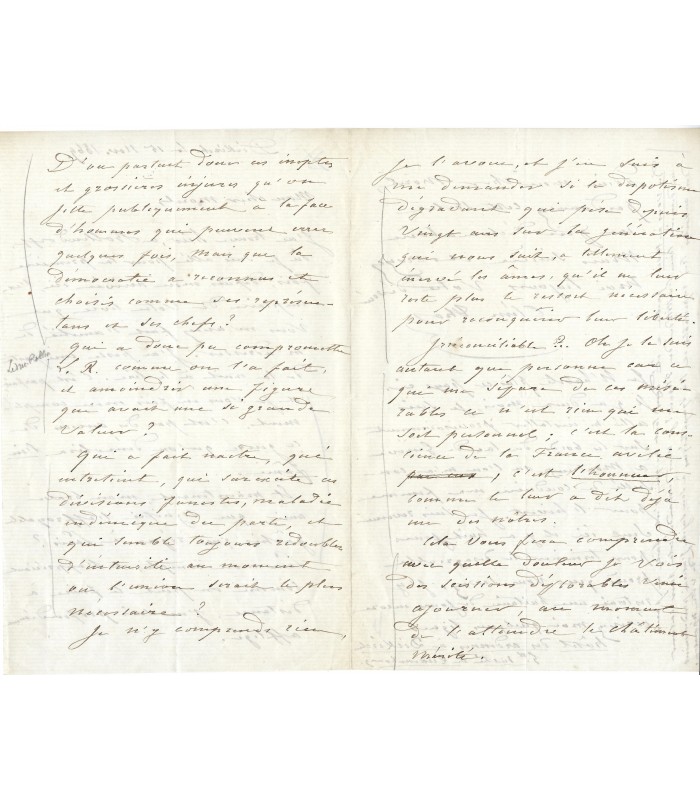 D'où partent donc ces ineptes
et grossières injures qu'on
jette publiquement à la face
d'hommes qui peuvent errer
quelques fois, mais que la
démocratie a reconnus et
choisis comme ses représen-
tans et ses chefs?
qui a donc pu compromettre
L. R. comme on l'a fait,
et amoindrir une figure
qui avait une si grande
valeur?
Qui a fait naître, qui
entretient, qui surexcite ces
divisions funestes, maladie
endémique du parti, et
qui semble toujours redoubler
d'intensité au moment
où l'union serait le plus
nécessaire?
Je n'y comprends rien,
Je l'avoue, et j'en suis à
me demander si le despotisme
dégradant qui pèse depuis
vingt ans sur la génération
qui nous suit, a tellement
énervé les âmes, qu'il ne leur
reste plus le ressort nécessaire
pour reconquérir leur liberté.
Irréconciliable?.. Oh je le suis
autant que personne car ce
qui me sépare de ces misé-
rables ce n'est rien qui me
soit personnel; c'est la cons-
cience de la France avilie
; c'est l'honneur,
comme le leur a dit déjà
un des nôtres.
Cela vous fera comprendre
avec quelle douleur je vois
des scissions déplorables venir
ajourner, au moment
de l'atteindre le châtiment
mérité.